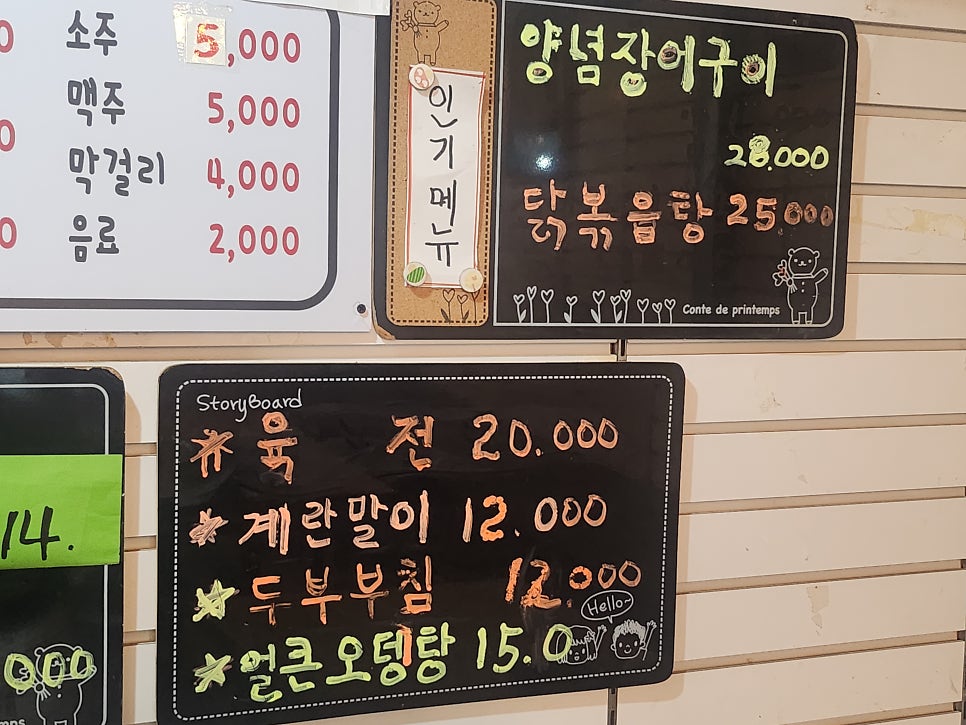 소주 5,000
맥주 5,000
막걸리 4,000
음료 2,000
인기메뉴
양념장어구이
28.000
닭볶음탕 25000
Conte de printemps
StoryBoard
육 전 20.000
계란말이 12.000
두부부침 12.000
Hello~
얼큰오뎅탕 15.0
14.
000